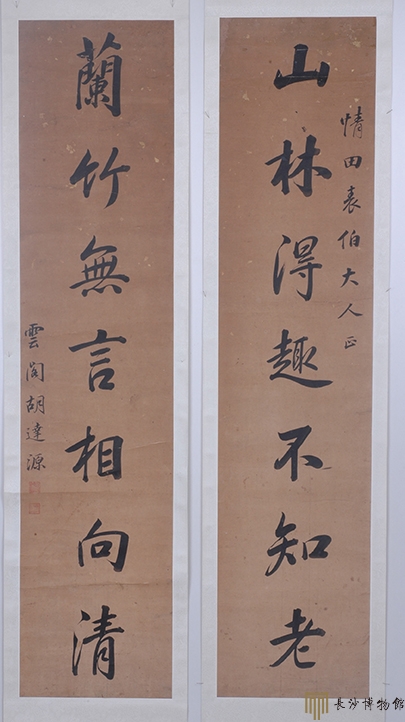 情田表伯大人正
山林得趣不知老
蘭竹無言相向清
雲閣胡達源
長沙博物館